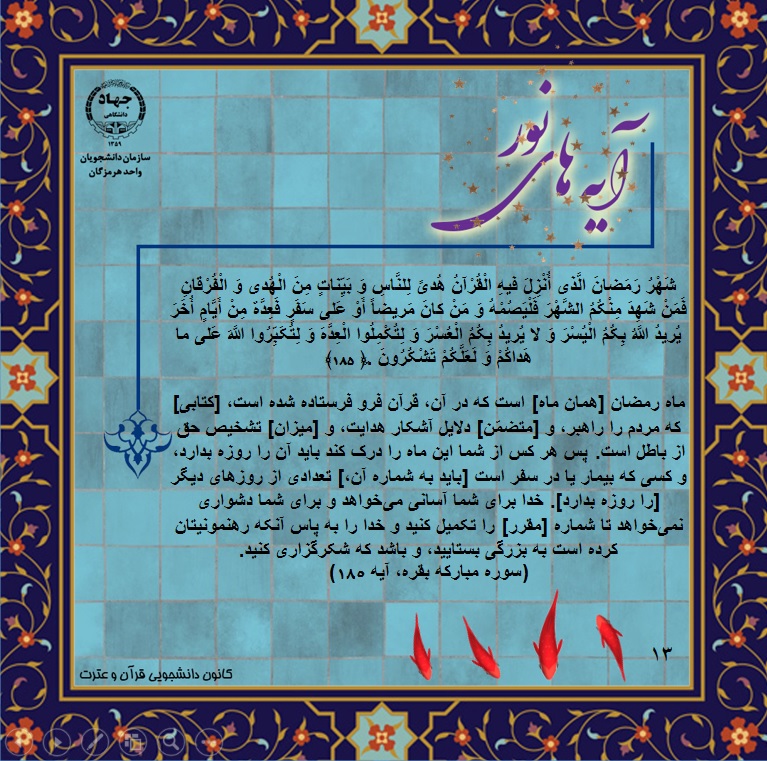 آیه های نور
جهاد
دانشگاهی
۱۳۵۹
سازمان دانشجویان
واحد هرمزگان
شَهْرُ رَمَضانَ الَّذی أُنْزِلَ فیهِ الْقُرْآنُ هُدیً لِلنَّاسِ وَ بَیِّناتٍ مِنَ الْهُدی وَ الْفُرْقانِ
فَمَنْ شَهِدَ مِنْکُمُ الشَّهْرَ فَلْیَصُمْهُ وَ مَنْ کانَ مَریضاً أَوْ عَلی سَفَرٍ فَعِدَّةٌ مِنْ أَیَّامٍ أُخَرَ
یُریدُ اللَّهُ بِکُمُ الْیُسْرَ وَ لا یُریدُ بِکُمُ الْعُسْرَ وَ لِتُکْمِلُوا الْعِدَّةَ وَ لِتُکَبِّرُوا اللَّهَ عَلی ما
هَداکُمْ وَ لَعَلَّکُمْ تَشْکُرُونَ .﴿۱۸۵﴾
ماه رمضان [همان ماه] است که در آن، قرآن فرو فرستاده شده است، [کتابی]
که مردم را راهبر، و [متضمّن] دلایل آشکار هدایت، و [میزان] تشخیص حق
از باطل است. پس هر کس از شما این ماه را درک کند باید آن را روزه بدارد،
و کسی که بیمار یا در سفر است [باید به شماره آن،] تعدادی از روزهای دیگر
[را روزه بدارد]. خدا برای شما آسانی می‌خواهد و برای شما دشواری
نمی‌خواهد تا شماره [مقرر] را تکمیل کنید و خدا را به پاس آنکه رهنمونیتان
کرده است به بزرگی بستایید، و باشد که شکرگزاری کنید.
(سوره مبارکه بقره، آیه ۱۸۵)
۱۳
کانون دانشجویی قرآن و عترت